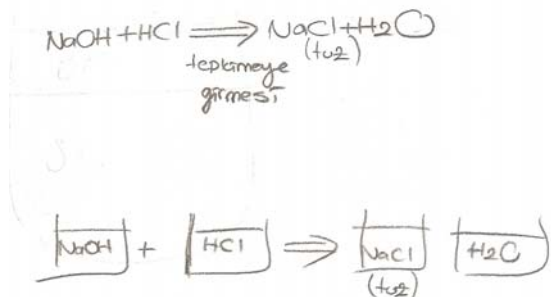 NaOH + HCl ⟹ NaCl + H2O
(tuz)
tepkimeye
girmesi
NaOH + HCl ⟹ NaCl H2O
(tuz)